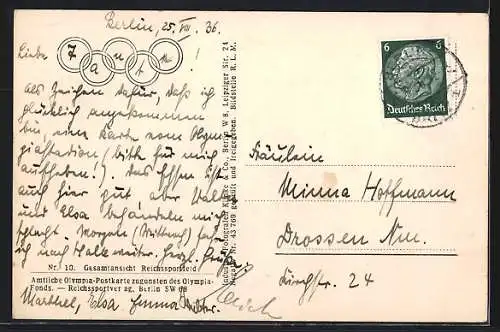 Berlin, 25. VIII. 36.
Liebe Tante !
als Zeichen dafür, daß ich
glücklich angekommen
bin, eine Karte vom Olym-
piastadion (bitte für mich
aufheben!). Das Essen ist
auch hier gut aber Walter
und Elsa behandeln mich
schlecht. Morgen (Mittwoch) fahre
ich nach Halle weiter. Herzl. Grüße
Nr. 10. Gesamtansicht Reichssportfeld
Amtliche Olympia-Postkarte zugunsten des Olympia-
Fonds. — Reichssportverlag, Berlin SW 68
Elsa Emma
& Co., Berlin W 8, Leipziger Str. 24
Nr. 43 769 geprüft und freigegeben Bildstelle R. L. M.
6 6
Deutsches Reich
Fräulein
Minna Hoffmann
Drossen Nm.
Kirchstr. 24